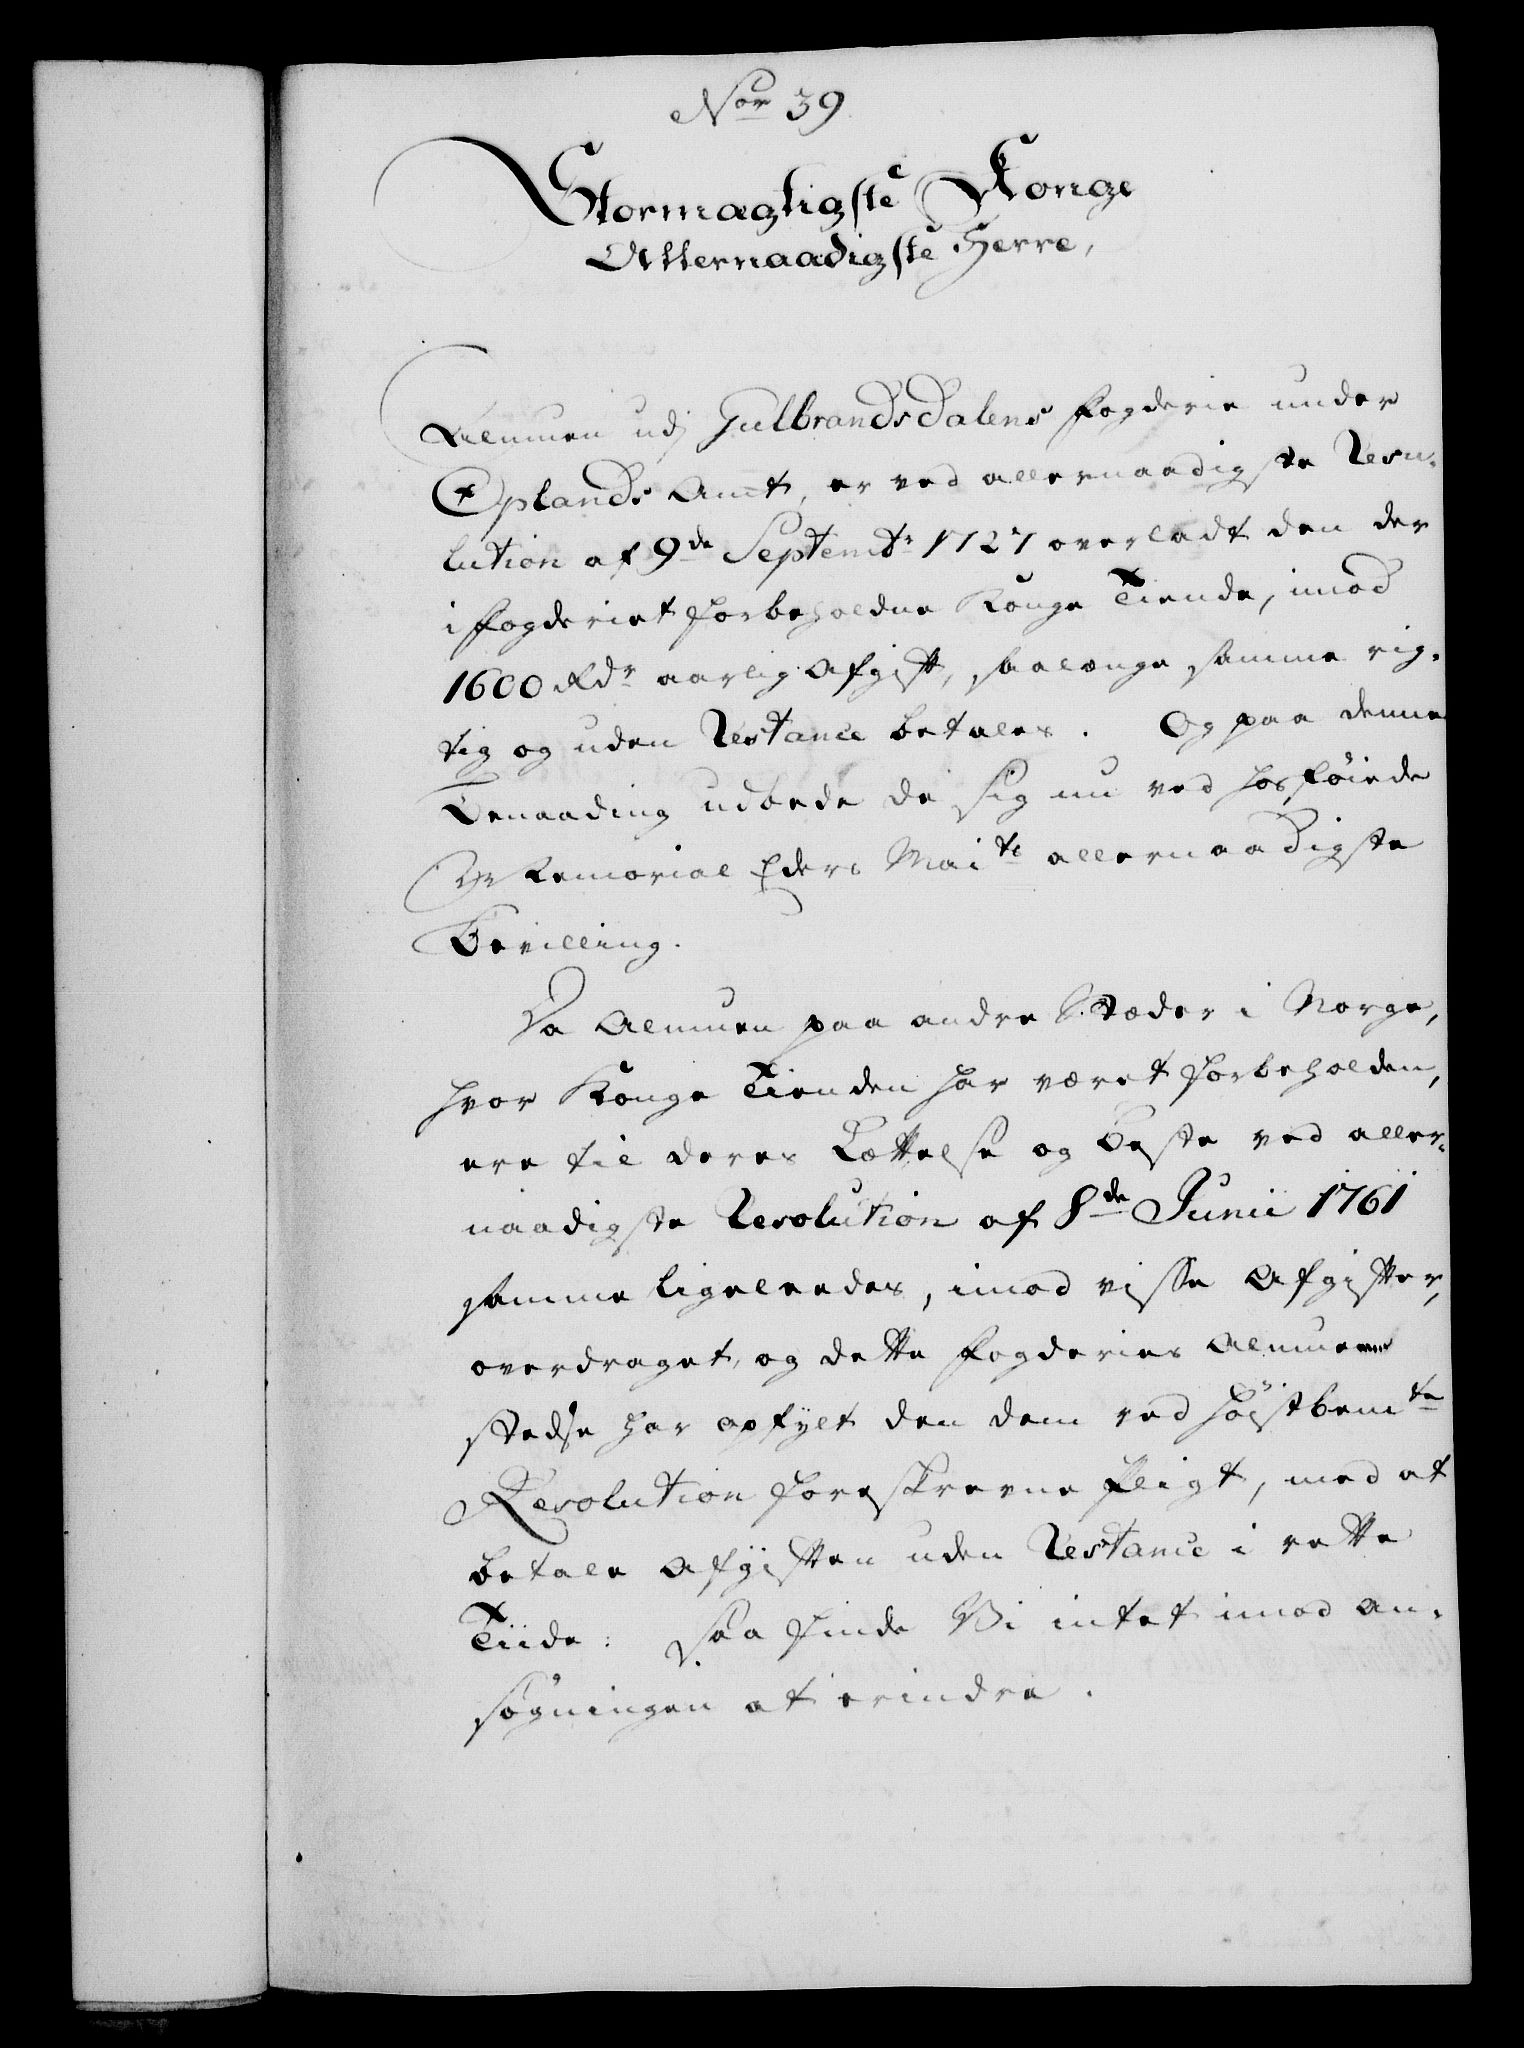 No̲r̲ 39
Stormægtigste Konge
Allernaadigste Herre,
Almuen udj Gulbrandsdalens Fogderie under
Oplands Amt, er ved allernaadigste Reso-
lution af 9de Septembr 1727 overladt den der
i Fogderiet forbeholdne Konge Tiende, imod
1600 Rdr aarlig Afgift, saalænge samme rig-
tig og uden Restance betales. Og paa denne
Benaading udbede de sig nu ved hosføiede
Memorial Eders Maits allernaadigste
Bevilling.
Da Almuen paa andre Stæder i Norge,
hvor Konge Tienden har været forbeholden,
ere til deres Lættelse og Beste ved aller-
naadigste Resolution af 8de Junii 1761
samme ligeleedes, imod visse Afgifter,
overdraget, og dette Fogderies Almue
stedse har opfylt den dem ved høistbemte
Resolution foreskrevne Pligt, med at
betale Afgiften uden Restance i rette
Tiide: Saa finde Vi intet imod An-
søgningen at erindre.